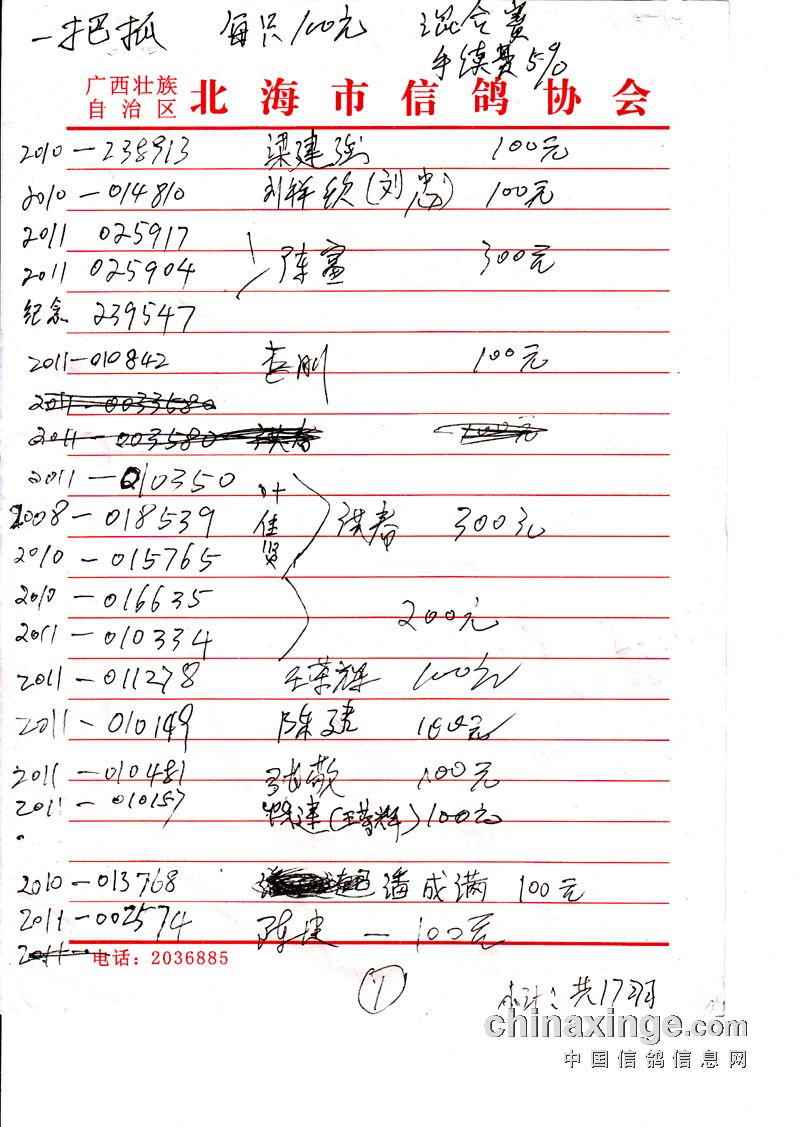 一把抓 每只100元 混合赛
手续费5%
广西壮族
自治区 北海市信鸽协会
2010-238913 梁建强 100元
2010-014810 刘祥钦(刘忠) 100元
2011 025917
2011 025904 陈富 300元
纪念 239547
2011-010842 李刚 100元
2011-0033680
2011-003580 洪春 100元
2011-010350 叶
2008-018539 佳 洪春 300元
2010-015765 贤
2010-016635
2011-010334 200元
2011-011278 王荣辉 100元
2011-010149 陈建 100元
2011-010481 张敬 100元
2011-010157 建(王荣辉)100元
2010-013768 潘成满 100元
2011-002574 陈建 — 100元
2011-
电话：2036885
1 小计：共17羽
chinaxinge.com
中国信鸽信息网